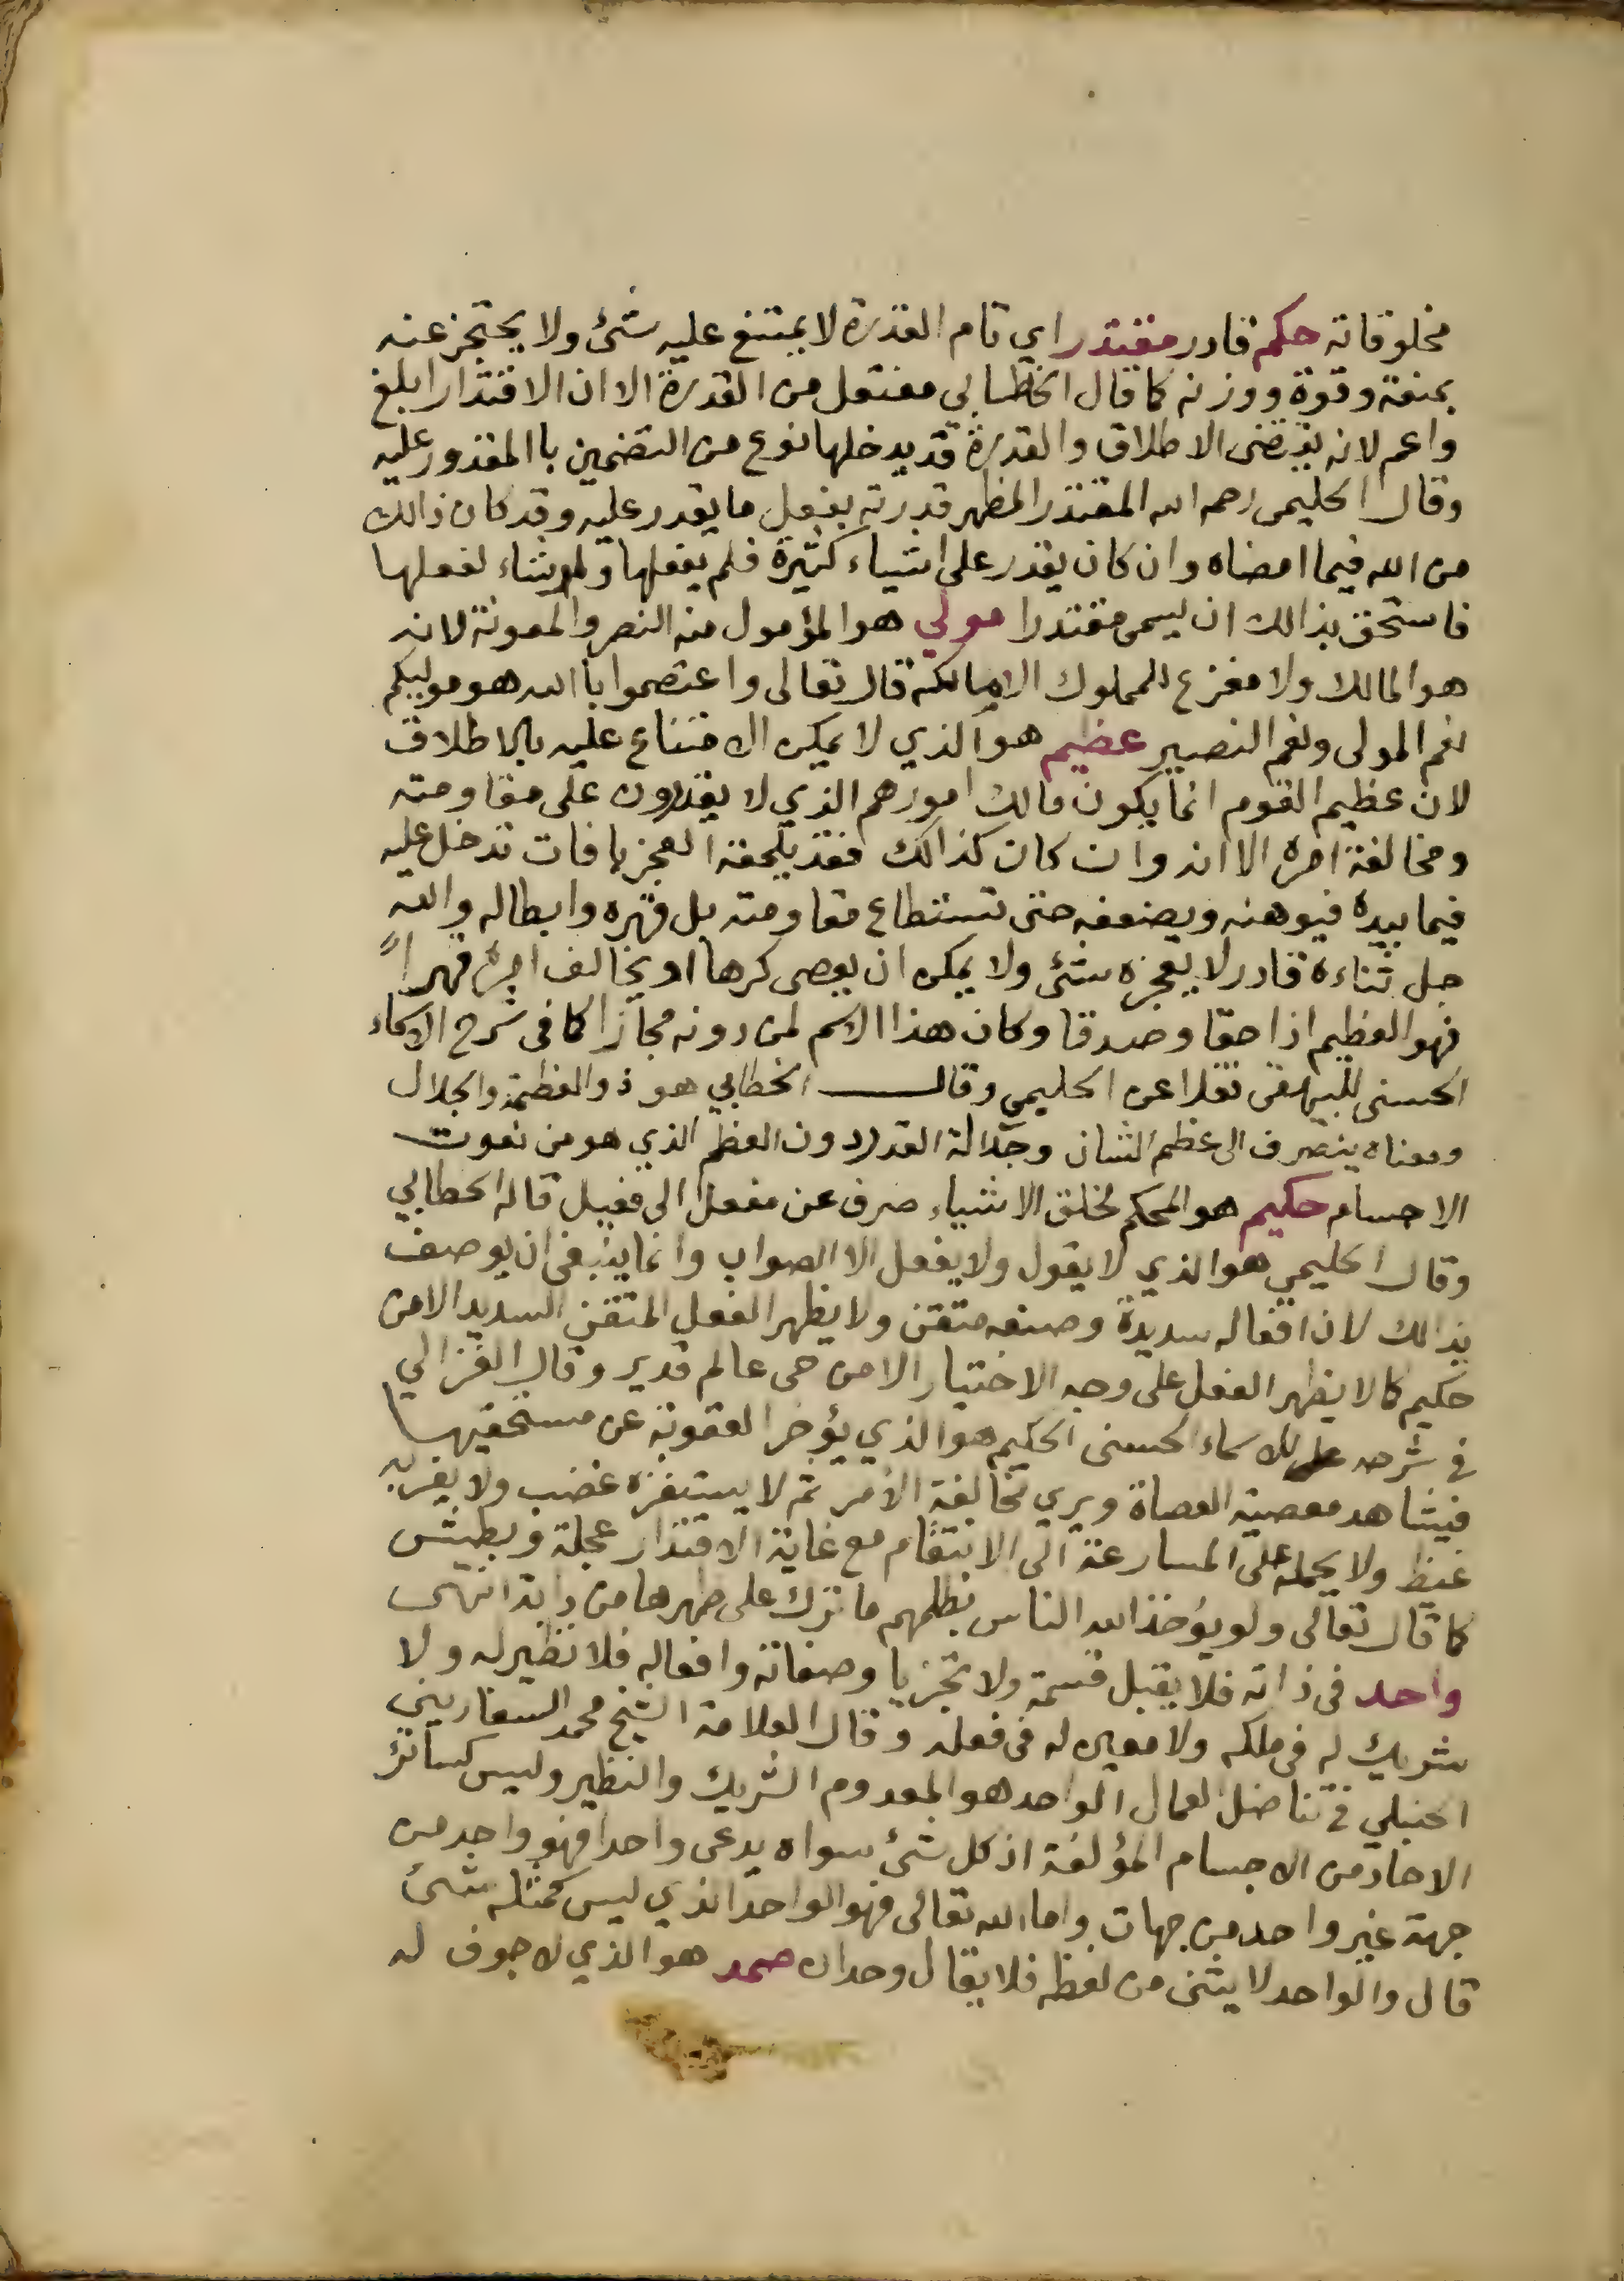 مخلوقاته حكم قادر مقتدر اي تام القدرة لا يمتنع عليه شئ ولا يحتجز عنه
بمنعة وقوة ووزنه كما قال الخطابي مفتعل من القدرة الا ان الاقتدار ابلغ
واعم لانه يقتضى الاطلاق والقدرة قد يدخلها نوع من التضمين باالمقدور عليه
وقال الحليمى رحمه الله المقتدر المظهر قدرته بفعل ما يقدر عليه وقد كان ذالك
من الله فيما امضاه وان كان يقدر على اشياء كثيرة فلم يفعلها ولو شاء لفعلها
فاستحق بذالك ان يسمى مقتدرا مولي هو المؤمول منه النصر والمعونة لانه
هو المالك ولا مفزع للمملوك الا مالكه قال تعالى واعتصموا باالله هو موليكم
نعم المولى ونعم النصير عظيم هو الذي لا يمكن الامتناع عليه بالاطلاق
لان عظيم القوم انما يكون مالك امورهم الذي لا يقدرون على مقاومته
ومخالفة امره الا انه وان كان كذالك فقد يلحقه العجز بافات تدخل عليه
فيما بيده فيوهنه ويضعفه حتى تستطاع مقاومته بل قهره وابطاله والله
جل ثناءه قادر لا يعجزه شئ ولا يمكن ان يعصى كرها او يخالف امره قهراً
فهو العظيم اذا حقا وصدقا وكان هذا الاسم لمن دونه مجازا كما فى شرح الاسماء
الحسنى للبيهقى نقلا عن الحليمي وقال الخطابي هو ذو العظمة والجلال
ومعناه ينصرف الى عظم الشان وجلالة القدر دون العظم الذي هو من نعوت
الاجسام حكيم هو المحكم لخلق الاشياء صرف عن مفعل الى فعيل قاله الخطابي
وقال الحليمي هو الذي لا يقول ولا يفعل الا الصواب وانما ينبغى ان يوصف
بذالك لان افعاله سديدة وصنعه متقن ولا يظهر الفعل المتقن السديد الا من
حكيم كما لا يظهر الفعل على وجه الاختيار الا من حى عالم قدير وقال الغزالي
في شرحه للاسماء الحسنى الحليم هو الذي يؤخر العقوبة عن مستحقيها
فيشاهد معصية العصاة ويري مخالفة الأمر ثم لا يستفزه غضب ولا يغريه
غيظ ولا يحمله على المسارعة الى الانتقام مع غاية الاقتدار عجلة وبطيش
كما قال تعالى ولو يؤخذ الله الناس بظلمهم ما ترك على ظهرها من دابة انتهى
واحد فى ذاته فلا يقبل قسمة ولا تجزيا وصفاته وافعاله فلا نظير له ولا
شريك له فى ملكه ولا معين له فى فعله وقال العلامة الشيخ محمد السفاريني
الحنبلي في تناضل العمال الواحد هو المعدوم الشريك والنظير وليس كسائر
الاحاد من الاجسام المؤلفة اذ كل شئ سواه يدعى واحدا فهو واحد من
جهة غير واحد من جهات واما الله تعالى فهو الواحد الذي ليس كمثله شئ
قال والواحد لا يثنى من لفظه فلا يقال وحدان صمد هو الذي لا جوف له